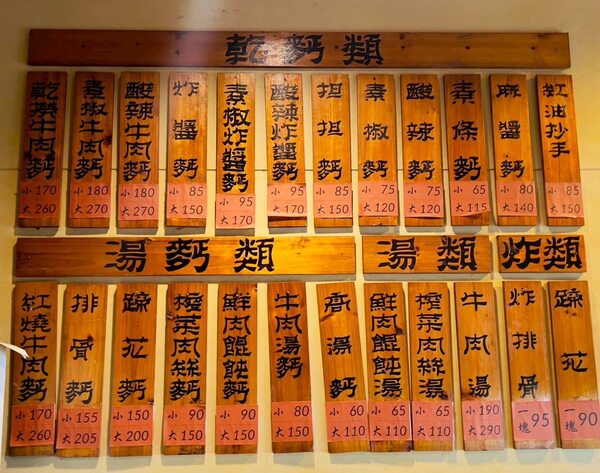 乾麪類
乾辣牛肉麪
小170
大260
素椒牛肉麪
小180
大270
酸辣牛肉麪
小180
大270
炸醬麪
小85
大150
素椒炸醬麪
小95
大170
酸辣炸醬麪
小95
大170
担担麪
小85
大150
素椒麪
小75
大120
酸辣麪
小75
大120
素條麪
小65
大115
麻醬麪
小80
大140
紅油抄手
小85
大150
湯麪類
紅燒牛肉麪
小170
大260
排骨麪
小155
大205
蹄花麪
小150
大200
榨菜肉絲麪
小90
大150
鮮肉餛飩麪
小90
大150
牛肉湯麪
小80
大150
高湯麪
小60
大110
湯類
鮮肉餛飩湯
小65
大110
榨菜肉絲湯
小65
大110
牛肉湯
小190
大290
炸類
炸排骨
一塊95
蹄花
一塊90